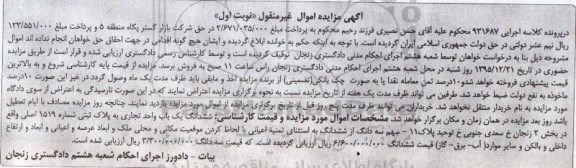 آگهی مزایده اموال غیرمنقول «نوبت اول»
درپرونده کلاسه اجرایی ۹۳۱۶۸۷ محکوم علیه آقای حسن نصیری فرزند رحیم محکوم به پرداخت مبلغ ۲/۶۷۱/۰۳۵/۰۰۰ در حق شرکت بازار گستر پگاه منطقه ۵ و پرداخت مبلغ ۱۳۳/۵۵۱/۰۰۰
ریال نیم عشر دولتی در حق دولت جمهوری اسلامی ایران گردیده است. با توجه به اینکه حکم به خوانده ابلاغ گردیده و ایشان هیچ گونه اقدامی در جهت احقاق حق خواهان انجام نداده اند اموال
مشروحه ذیل بنا به درخواست خواهان توسط شعبه هشتم اجرای احکام مدنی دادگستری زنجان توقیف گردیده است و توسط کارشناس رسمی دادگستری ارزیابی شده و قرار است از طریق مزایده
حضوری در تاریخ ۱۳۹۵/۱۲/۲۱ روز شنبه در محل شعبه هشتم اجرای احکام مدنی دادگستری زنجان راس ساعت ۱۱ صبح به فروش برسد. مزایده از قیمت پایه کارشناسی شروع و به بالاترین
قیمت پیشنهادی فروخته خواهد شد، ۱۰درصد ثمن معامله نقدا یا به صورت چک بانکی(تضمینی) از برنده مزایده اخذ و مابقی باید ظرف مدت یک ماه وصول گردد در غیر این صورت ۱۰درصد
ماخوذه به نفع دولت ضبط خواهد شد. طرفین می توانند ظرف مدت یک هفته از تاریخ مزایده نسبت به نحوه برگزاری مزایده اعتراض نمایند که در این صورت تارسیدگی به اعتراض از سوی دادگاه
مورد مزایده به نام خریدار منتقل نخواهد شد. خریداران می توانند ظرف مدت پنج روز قبل از تاریخ برگزاری مزایده از اموال مورد مزایده بازدید نمایند. چنانچه روز مزایده مصادف با ایام تعطیل
باشد روز بعد مزایده در همان زمان و مکان برگزار خواهد شد. مشخصات اموال مورد مزایده و قیمت کارشناسی: ششدانگ یک باب واحد تجاری به پلاک ثبتی شماره ۱۵۱۹ اصلی واقع
در بخش ۲ زنجان خ سعدی جنوبی خ توحید پلاک۱۱ - سهم سه دانگ از ششدانگ به استثنای ثمنیه اعیانی با لحاظ کردن موقعیت مکانی و محلی ملک و ابعاد عرصه و اعیانی و ابعاد و ارتفاع
داخلی و بالکن و سایر موارد(آب- برق- گاز) قیمت ششدانگ ۶/۶۰۰/۰۰۰/۰۰۰ ریال ارزیابی گردیده است. که قیمت سه‌دانگ ۳/۳۰۰/۰۰۰/۰۰۰ ریال ارزیابی شده است.
بیات - دادورز اجرای احکام شعبه هشتم دادگستری زنجان